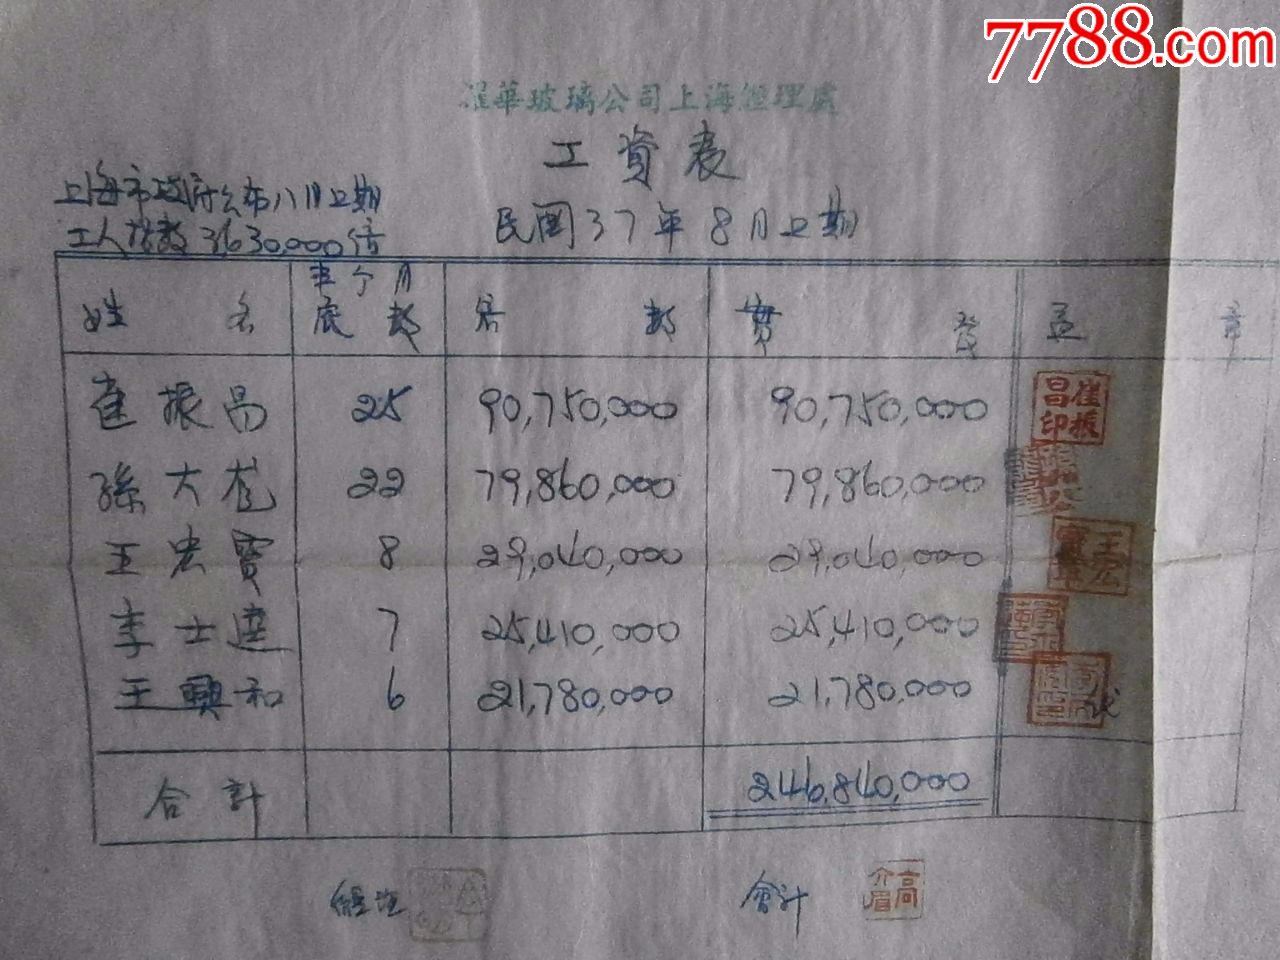 7788.com
華玻璃公司上海經理處
工資表
上海市政府公布八月上期
工人指数3,630,000倍
民國37年8月上期
姓名 半个月底数 倍数 實發 蓋章
崔振昌 25 90,750,000 90,750,000 崔振昌印
孫大 22 79,860,000 79,860,000
王宏寶 8 29,040,000 29,040,000
李士達 7 25,410,000 25,410,000
王興和 6 21,780,000 21,780,000 代
合計 246,840,000
經理 會計 高介眉